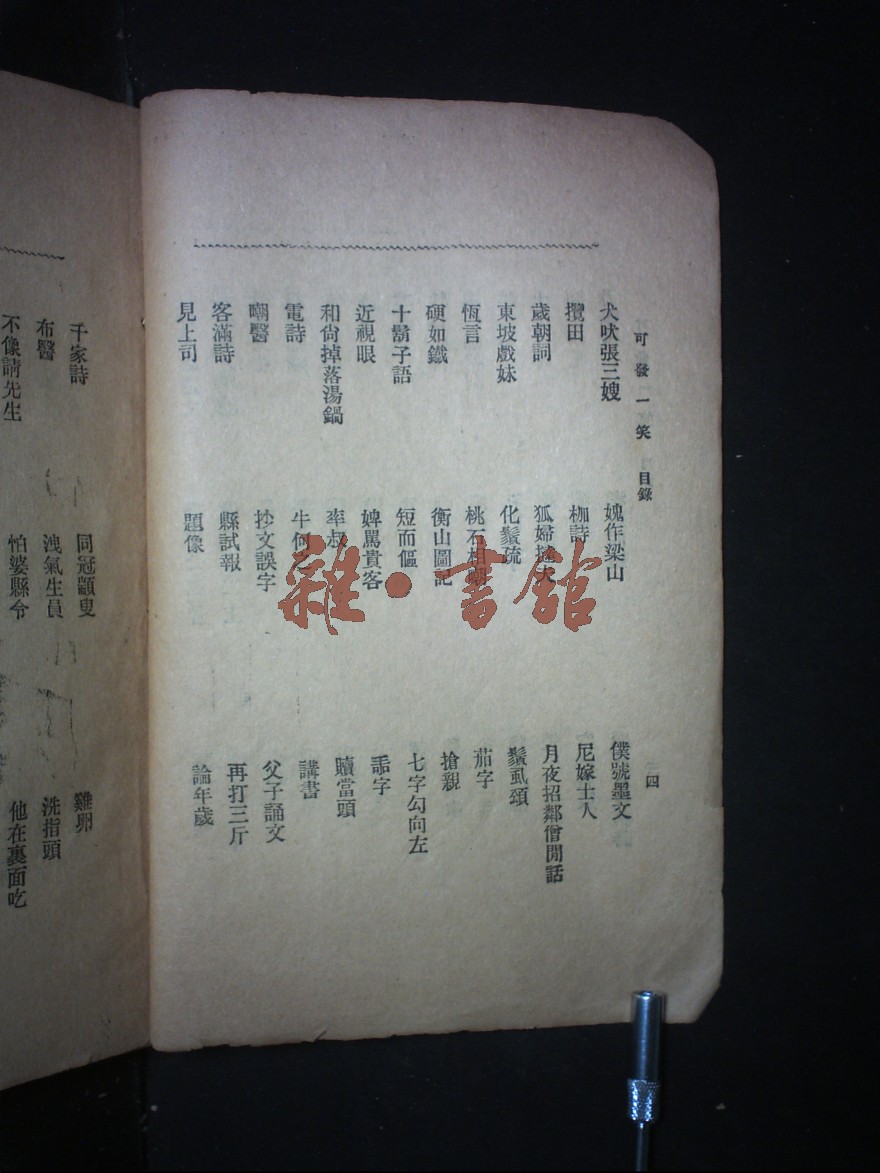 可發一笑 目錄 四
犬吠張三嫂 媿作梁山 僕號墨文
攬田 枷詩 尼嫁士人
歲朝詞 狐婦撻夫 月夜招鄰僧閒話
東坡戲妹 化鬚疏 鬚虱頌
恆言 桃石相 茄字
硬如鐵 衡山圖記 搶親
十鬍子語 短而傴 七字勾向左
近視眼 婢罵貴客 字
和尙掉落湯鍋 率叔 贖當頭
電詩 牛何之 講書
嘲醫 抄文誤字 父子誦文
客滿詩 縣試報 再打三斤
見上司 題像 論年歲
千家詩 同冠顓叟 雞卵
布醫 洩氣生員 洗指頭
不像請先生 怕婆縣令 他在裏面吃
雜·書館